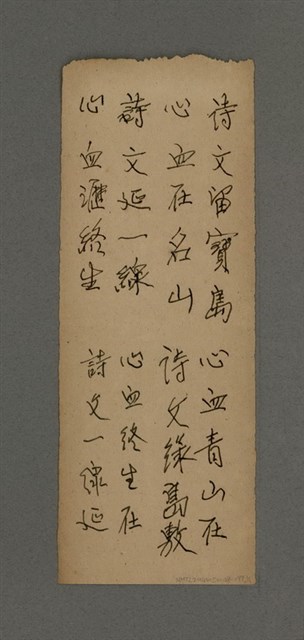 詩文留寶島
心血在名山
詩文延一線
心血滙終生
心血青山在
詩文綠島敷
心血終生在
詩文一線延